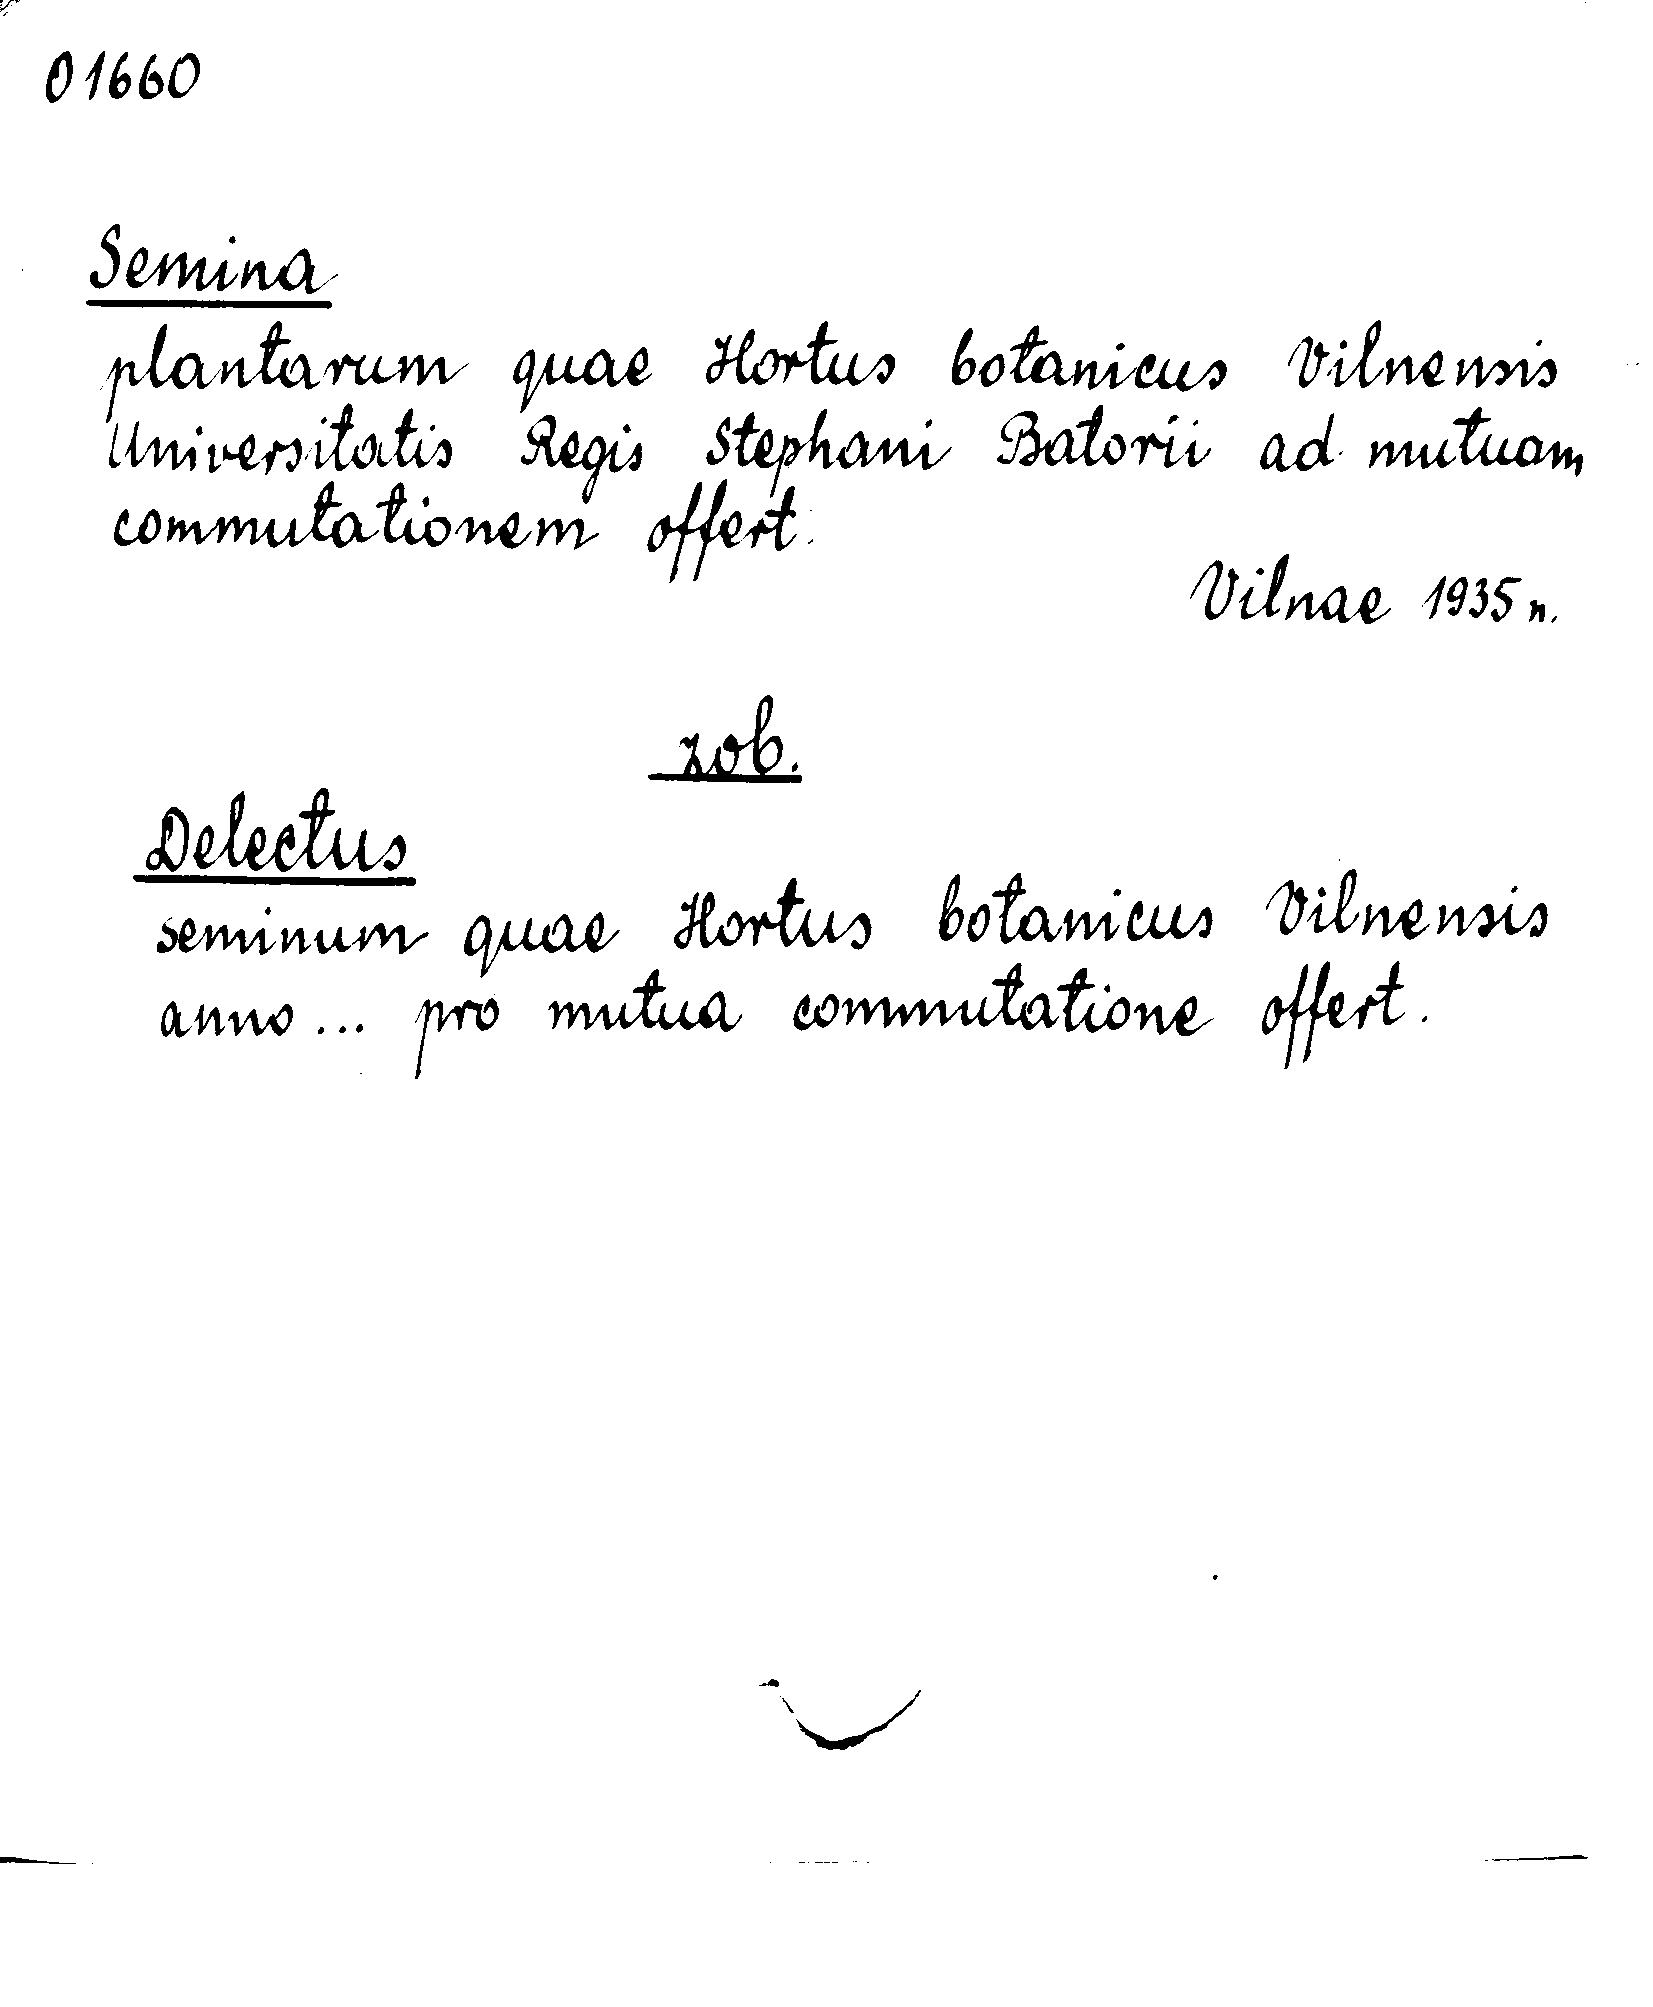 01660
Semina
plantarum quae Hortus botanicus Vilnensis
Universitatis Regis Stephani Batorii ad mutuam
commutationem offert.
Vilnae 1935 n.
zob.
Delectus
seminum quae Hortus botanicus Vilnensis
anno ... pro mutua commutatione offert.